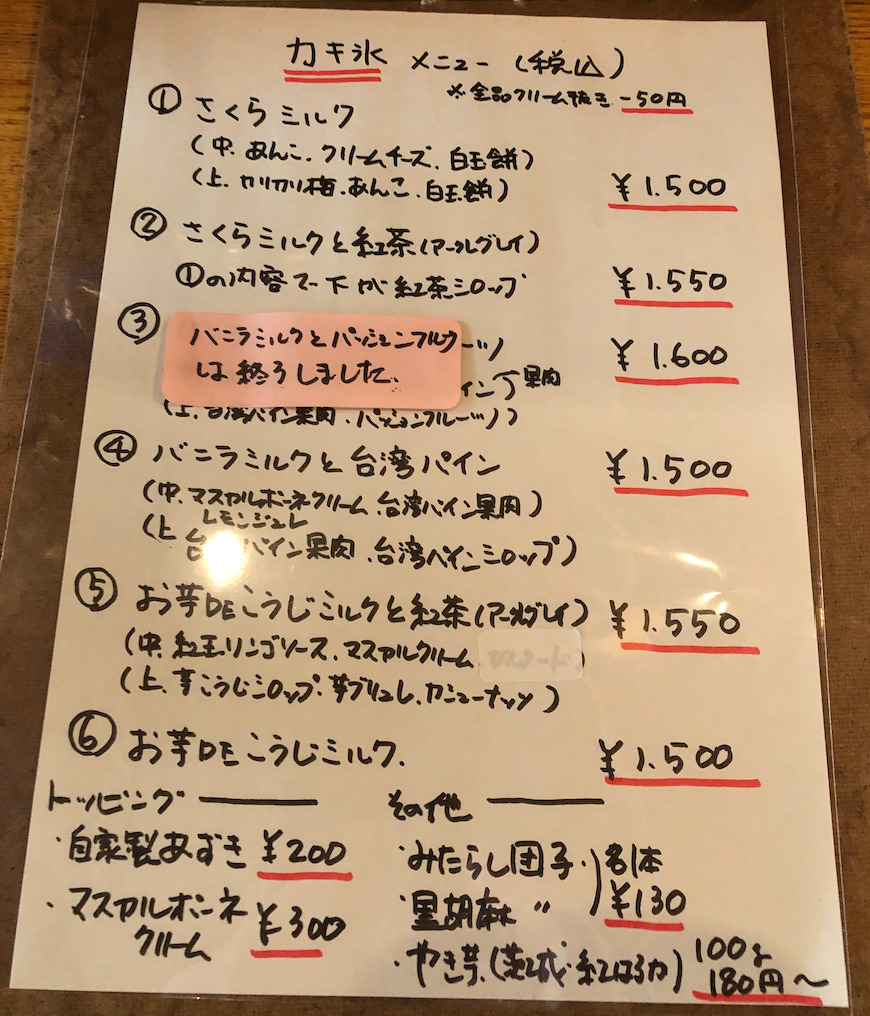 カキ氷 メニュー (税込)
※全品クリーム抜き -50円
① さくらミルク
(中. あんこ. クリームチーズ. 白玉餅)
(上. カリカリ梅. あんこ. 白玉餅) ¥1.500
② さくらミルクと紅茶(アールグレイ)
①の内容で下が紅茶シロップ ¥1.550
③ バニラミルクとパッションフルーツ ¥1.600
は終了しました.
イン果肉
(上. 台湾パイン果肉. パッションフルーツ)
④ バニラミルクと台湾パイン ¥1.500
(中. マスカルポーネクリーム. 台湾パイン果肉)
レモンジュレ
(上 台湾パイン果肉. 台湾パインシロップ)
⑤ お芋DEこうじミルクと紅茶(アールグレイ) ¥1.550
(中. 紅玉リンゴソース. マスカルクリーム. )
(上. 芋こうじシロップ. 芋ブリュレ. カシューナッツ)
⑥ お芋DEこうじミルク. ¥1.500
トッピング
・自家製あずき ¥200
・マスカルポーネ
クリーム ¥300
その他
・みたらし団子・ 各1本
・黒胡麻 〃 ¥130
・やき芋.(茨城・紅はるか) 100g
180円〜